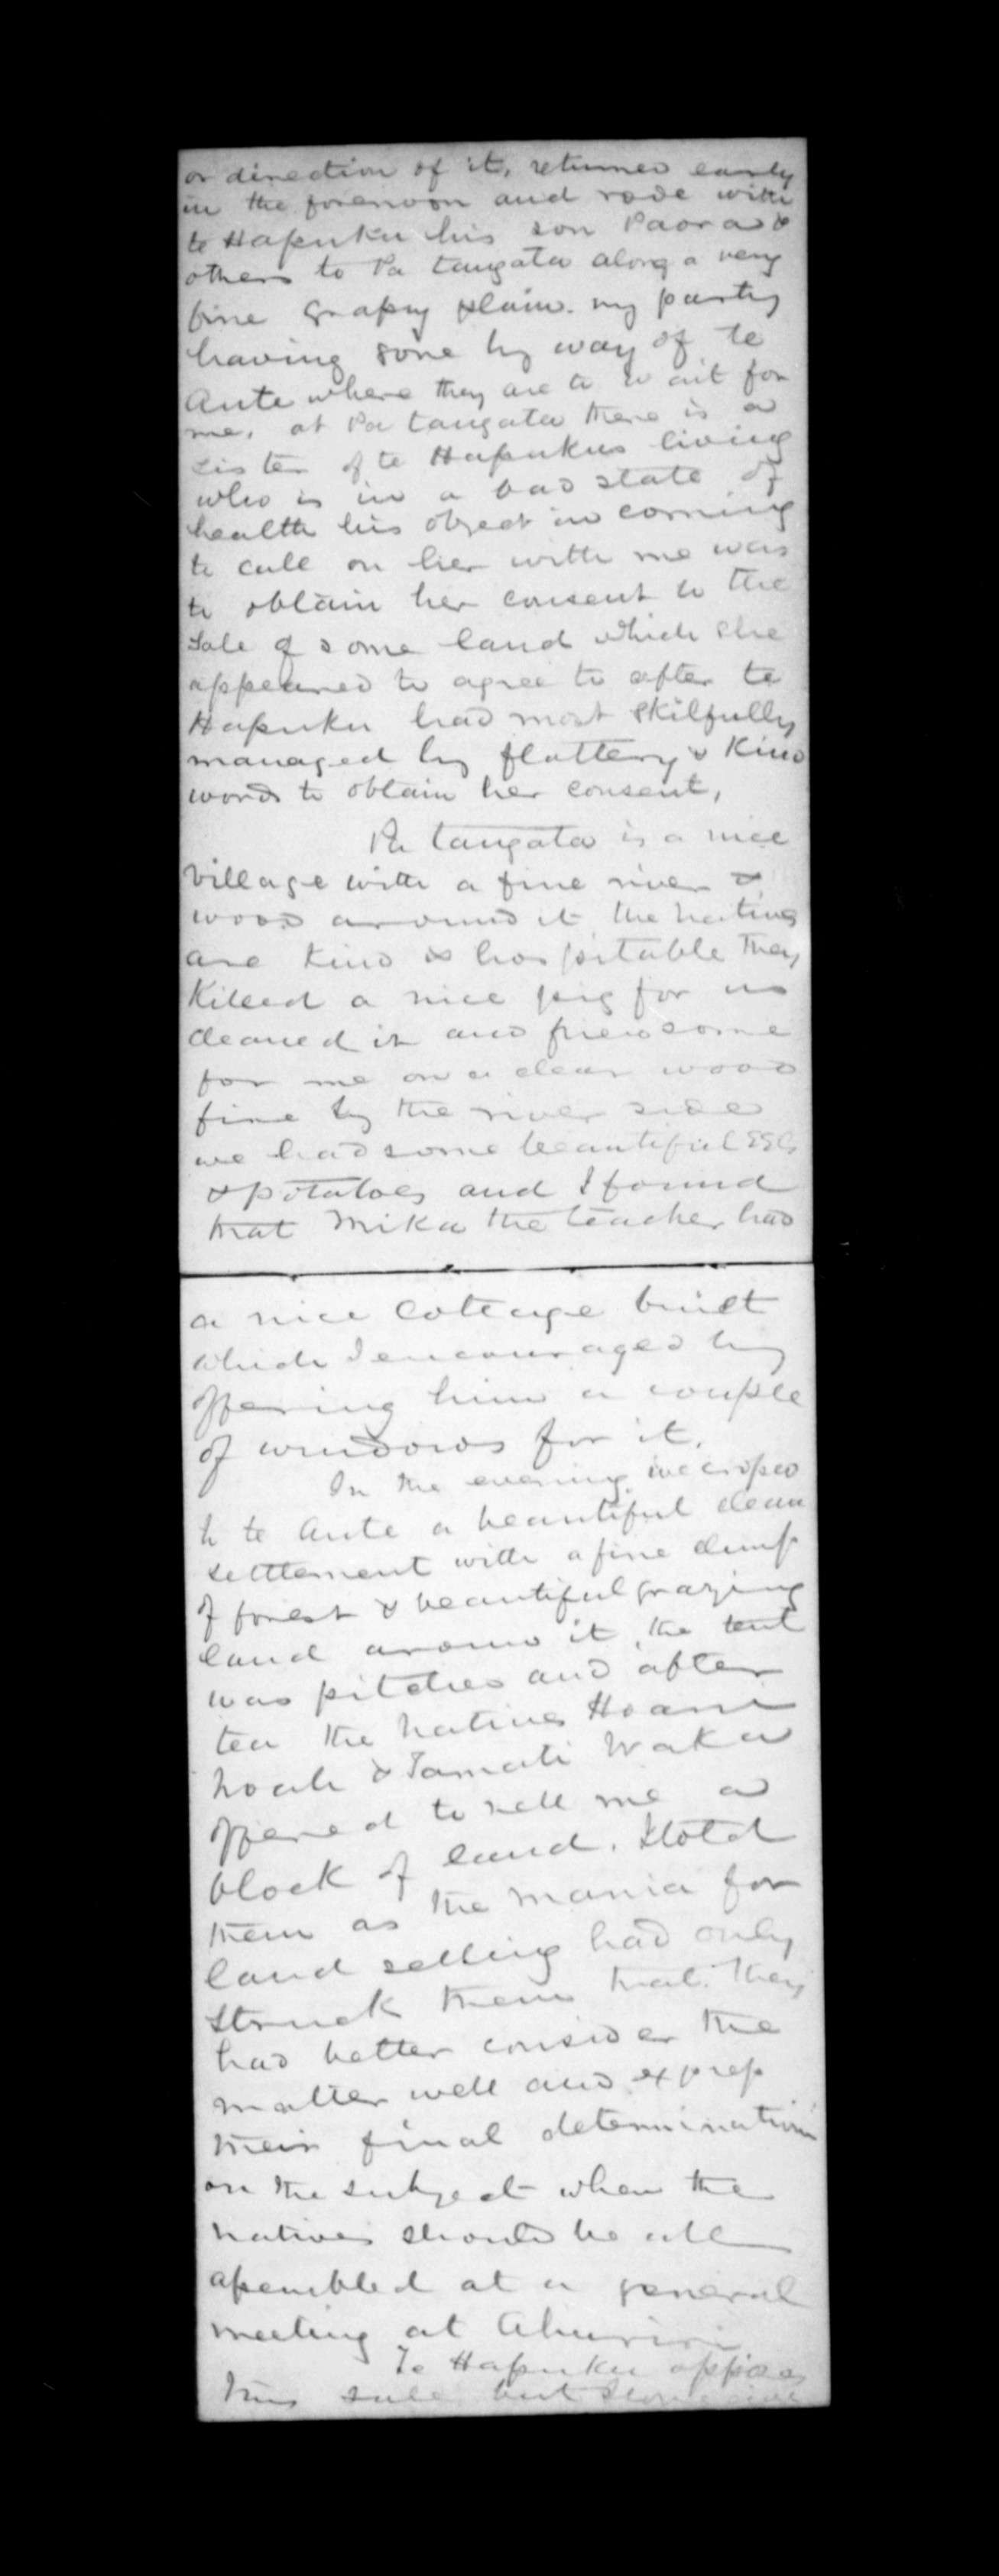 or direction of it, returned early
in the forenoon and rode with
te Hapuku his son Paora &
others to Pa tangata along a very
fine grassy plain. my party
having gone by way of te
Aute where they are to wait for
me. at Pa tangata there is a
sister of te Hapukus living
who is in a bad state of
health his object in coming
to call on her with me was
to obtain her consent to the
Sale of some land which she
appeared to agree to after te
Hapuku had most skilfully
managed by flattery & kind
words to obtain her consent,
Pa tangata is a nice
village with a fine river &
wood around it the natives
are kind & hospitable they
killed a nice pig for us
cleaned it and fried some
for me on a clear wood
fire by the river side
we had some beautiful
& potatoes and I found
that Mika the teacher had
a nice cottage built
which I encouraged by
offering him a couple
of windows for it.
In the evening we crossed
to te Aute a beautiful clean
settlement with a fine clump
of forest & beautiful grazing
land around it, the tent
was pitched and after
tea the natives Hoani
& Tamati Waka
offered to sell me a
block of land. I told
them as the mania for
land selling had only
struck them that they
had better consider the
matter well and express
their final determination
on the subject when the
natives should be all
assembled at a general
meeting at Ahuriri
Te Hapuku opposes
this sale but